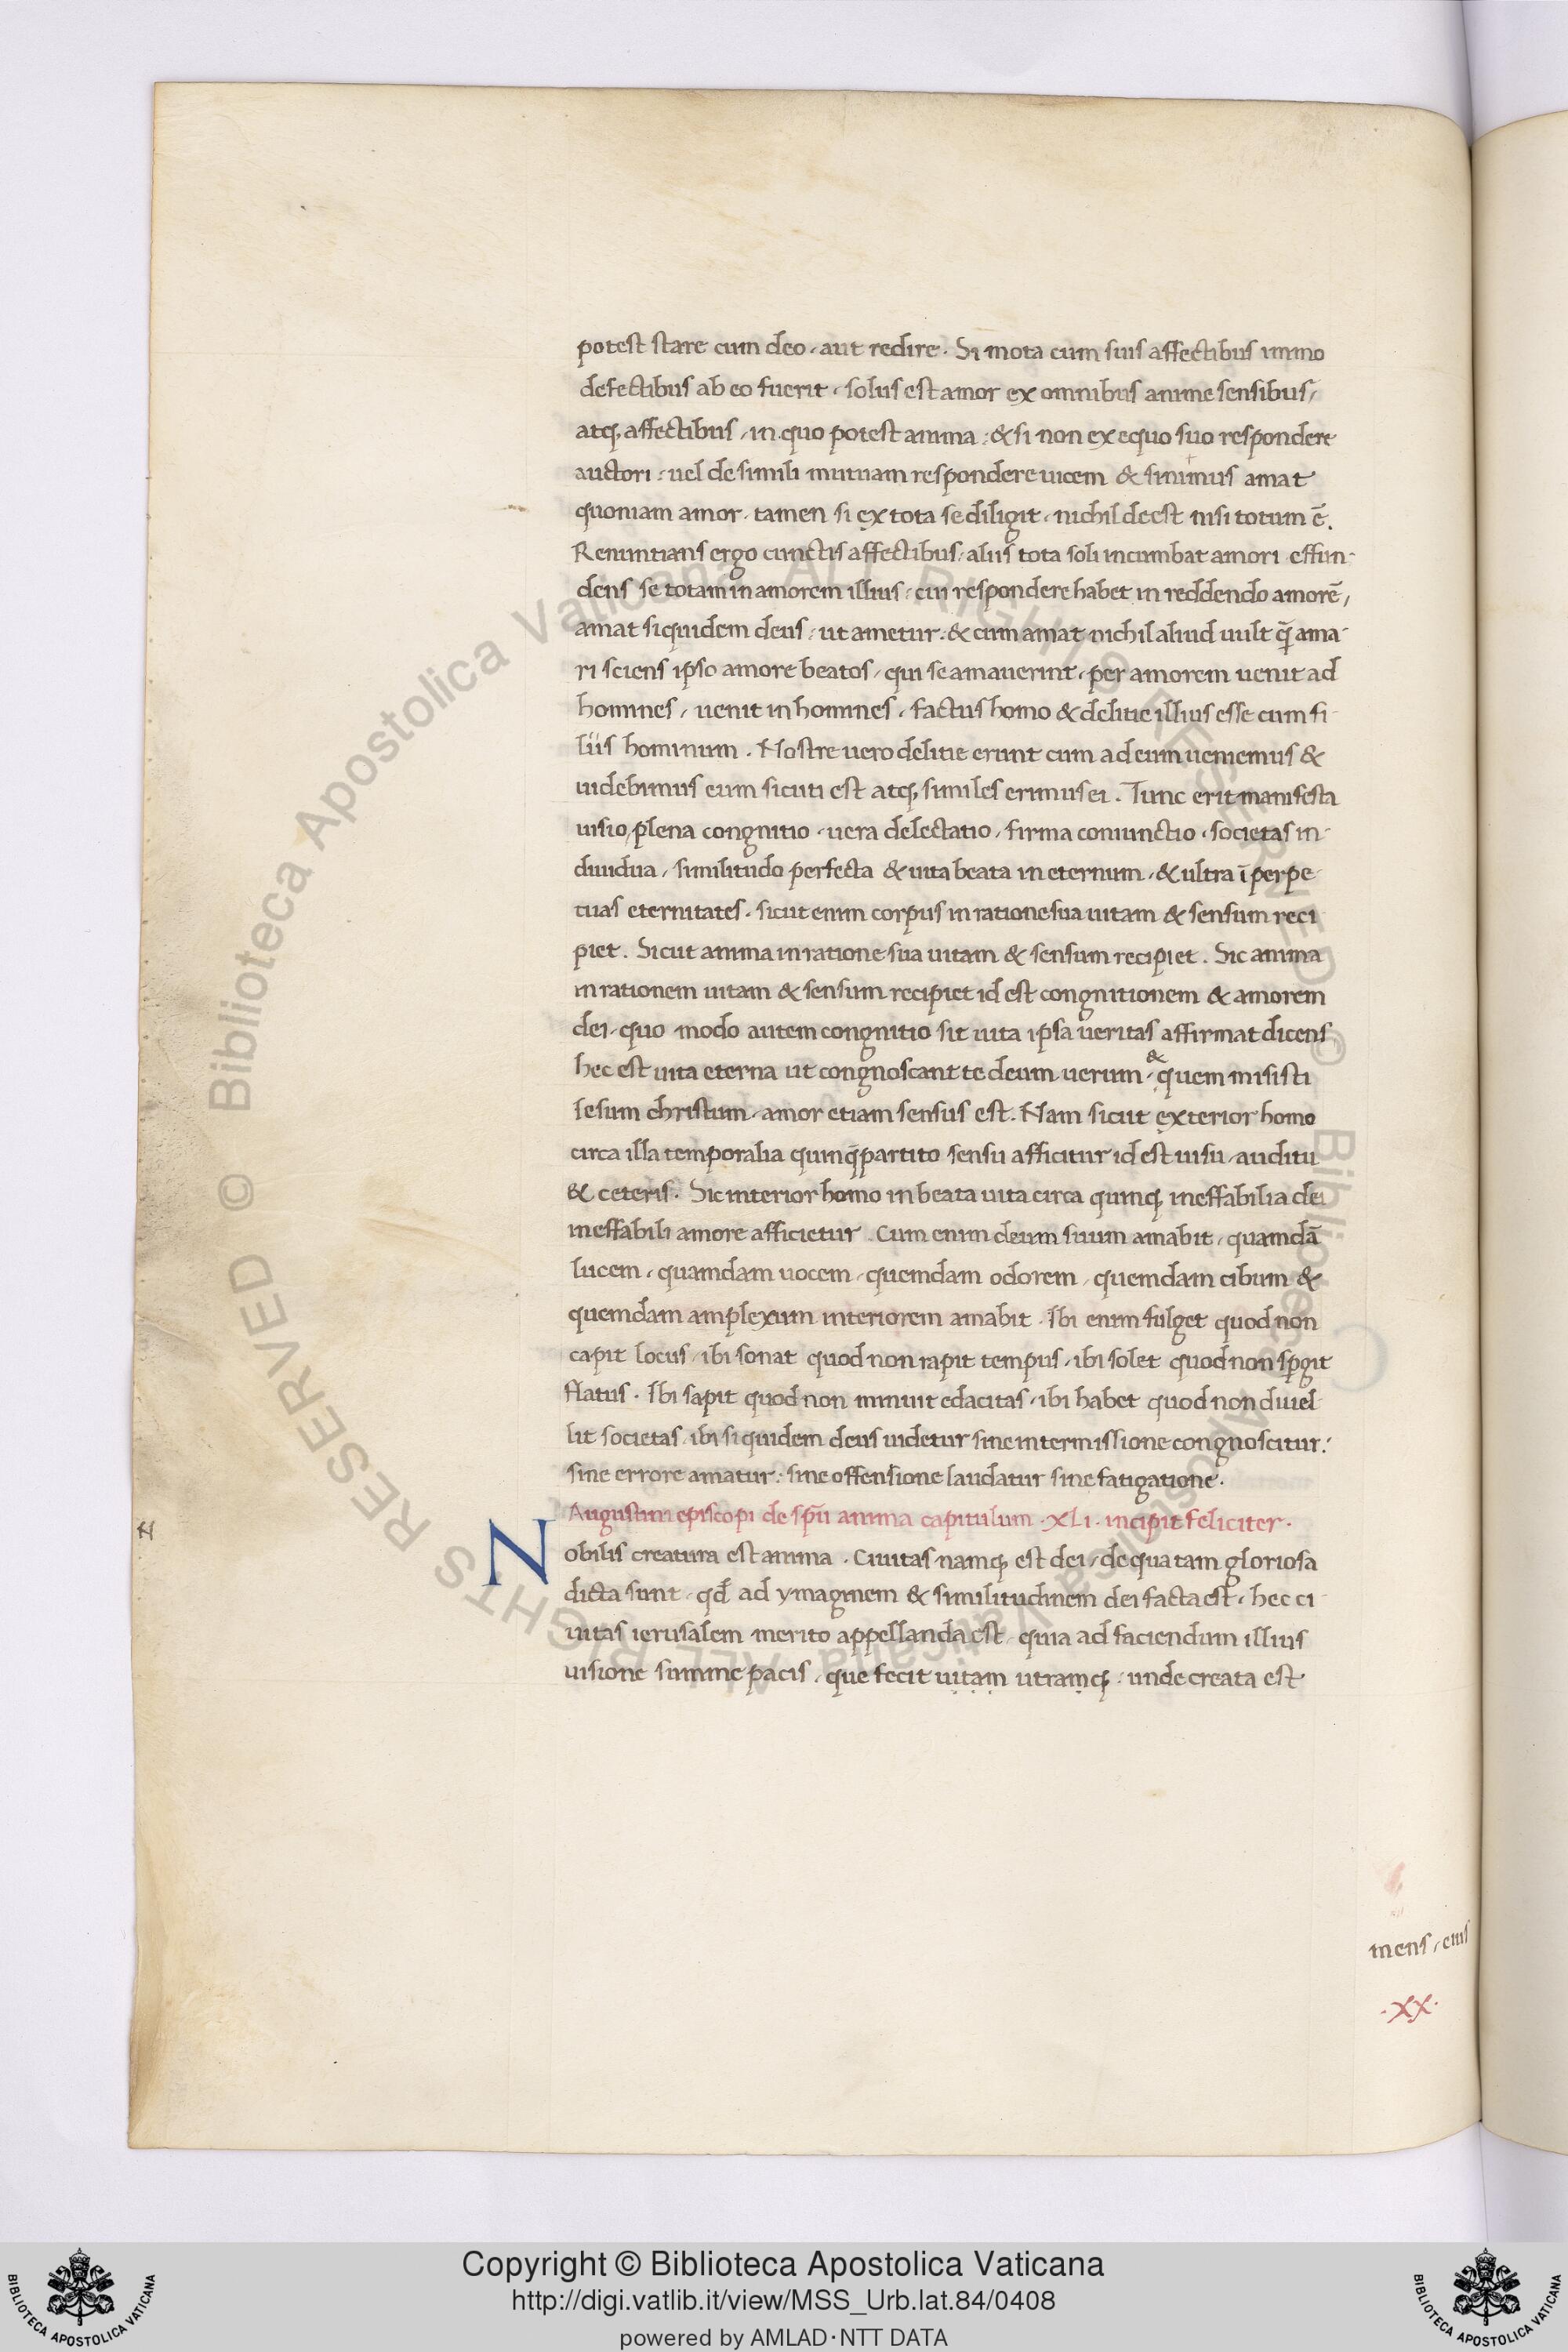 potest stare cum deo. aut redire. Si mota cum suis affectibus immo
defectibus ab eo fuerit. solus est amor ex omnibus anime sensibus/
atq; affectibus / in quo potest anima : & si non ex equo suo respondere
auctori : uel de simili mutuam respondere uicem & si minus amat
quoniam amor. tamen si ex tota se diligit. nichil deest nisi totum ē.
Renuntians ergo cunctis affectibus / aliis tota soli incumbat amori effun-
dens se totam in amorem illius : cui respondere habet in reddendo amorē/
amat siquidem deus : ut ametur. & cum amat nichil aliud uult q̄ ama-
ri sciens ipso amore beatos / qui se amauerint. per amorem uenit ad
homines / uenit in homines. factus homo & delitie illius esse cum fi-
liis hominum. Nostre uero delitie erunt cum ad eum ueniemus &
uidebimus eum sicuti est atq; similes erimus ei. Tunc erit manifesta
uisio / plena congnitio. uera delectatio / firma coniunctio. societas in-
diuidua / similitudo perfecta & uita beata in eternum. & ultra ī perpe-
tuas eternitates. sicut enim corpus in ratione sua uitam & sensum reci
piet. Sicut anima in ratione sua uitam & sensum recipiet. Sic anima
in rationem uitam & sensum recipiet id est congnitionem & amorem
dei. quo modo autem congnitio sit uita ipsa ueritas affirmat dicens
hec est uita eterna ut congnoscant te deum uerum. & quem misisti
Iesum christum. amor etiam sensus est. Nam sicut exterior homo
circa illa temporalia quinq̄partito sensu afficitur id est uisu / auditu
& ceteris. Sic interior homo in beata uita circa quinq; ineffabilia dei
ineffabili amore afficietur. Cum enim deum suum amabit. quamdā
lucem. quamdam uocem / quemdam odorem / quemdam cibum &
quemdam amplexum interiorem amabit. Ibi enim fulget quod non
capit locus / ibi sonat quod non rapit tempus. ibi solet quod non spgit
flatus. Ibi sapit quod non minuit edacitas. ibi habet quod non diuel
lit societas. ibi siquidem deus uidetur sine intermissione congnoscitur:
sine errore amatur: sine offensione laudatur sine fatigatione.
Augustini episcopi de spū anima capitulum .XLI. incipit feliciter.
N
Nobilis creatura est anima. Ciuitas namq; est dei / de qua tam gloriosa
dicta sunt. qd ad ymaginem & similitudinem dei facta est. hec ci
uitas ierusalem merito appellanda est. quia ad faciendum illius
uisione summe pacis. que fecit uitam utramq; : unde creata est
mens / eius
.XX.
Copyright © Biblioteca Apostolica Vaticana
http://digi.vatlib.it/view/MSS_Urb.lat.84/0408
powered by AMLAD·NTT DATA
BIBLIOTECA APOSTOLICA VATICANA
BIBLIOTECA APOSTOLICA VATICANA
© Biblioteca Apostolica Vaticana ALL RIGHTS RESERVED © Biblioteca Apostolica Vaticana ALL RIGHTS RESERVED